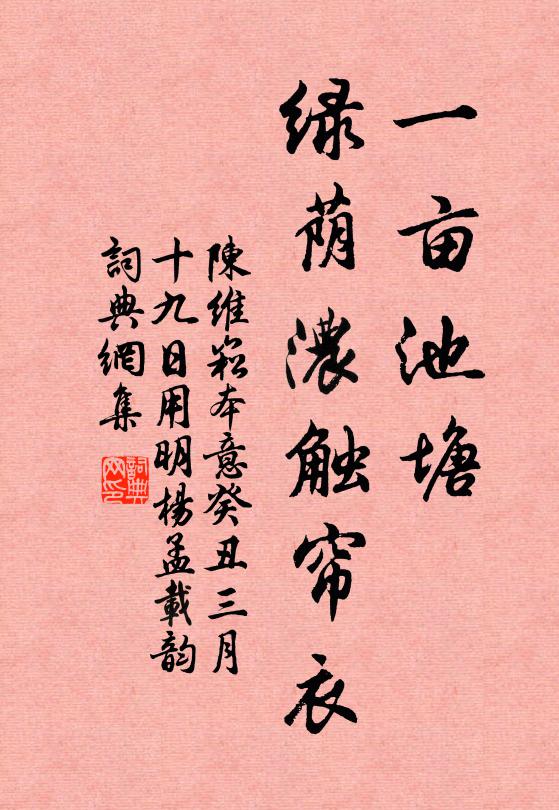 一亩池塘
绿荫濃触帘衣
陳維崧本意癸丑三月
十九日用明楊孟載韵
詞典網集
詞典網印